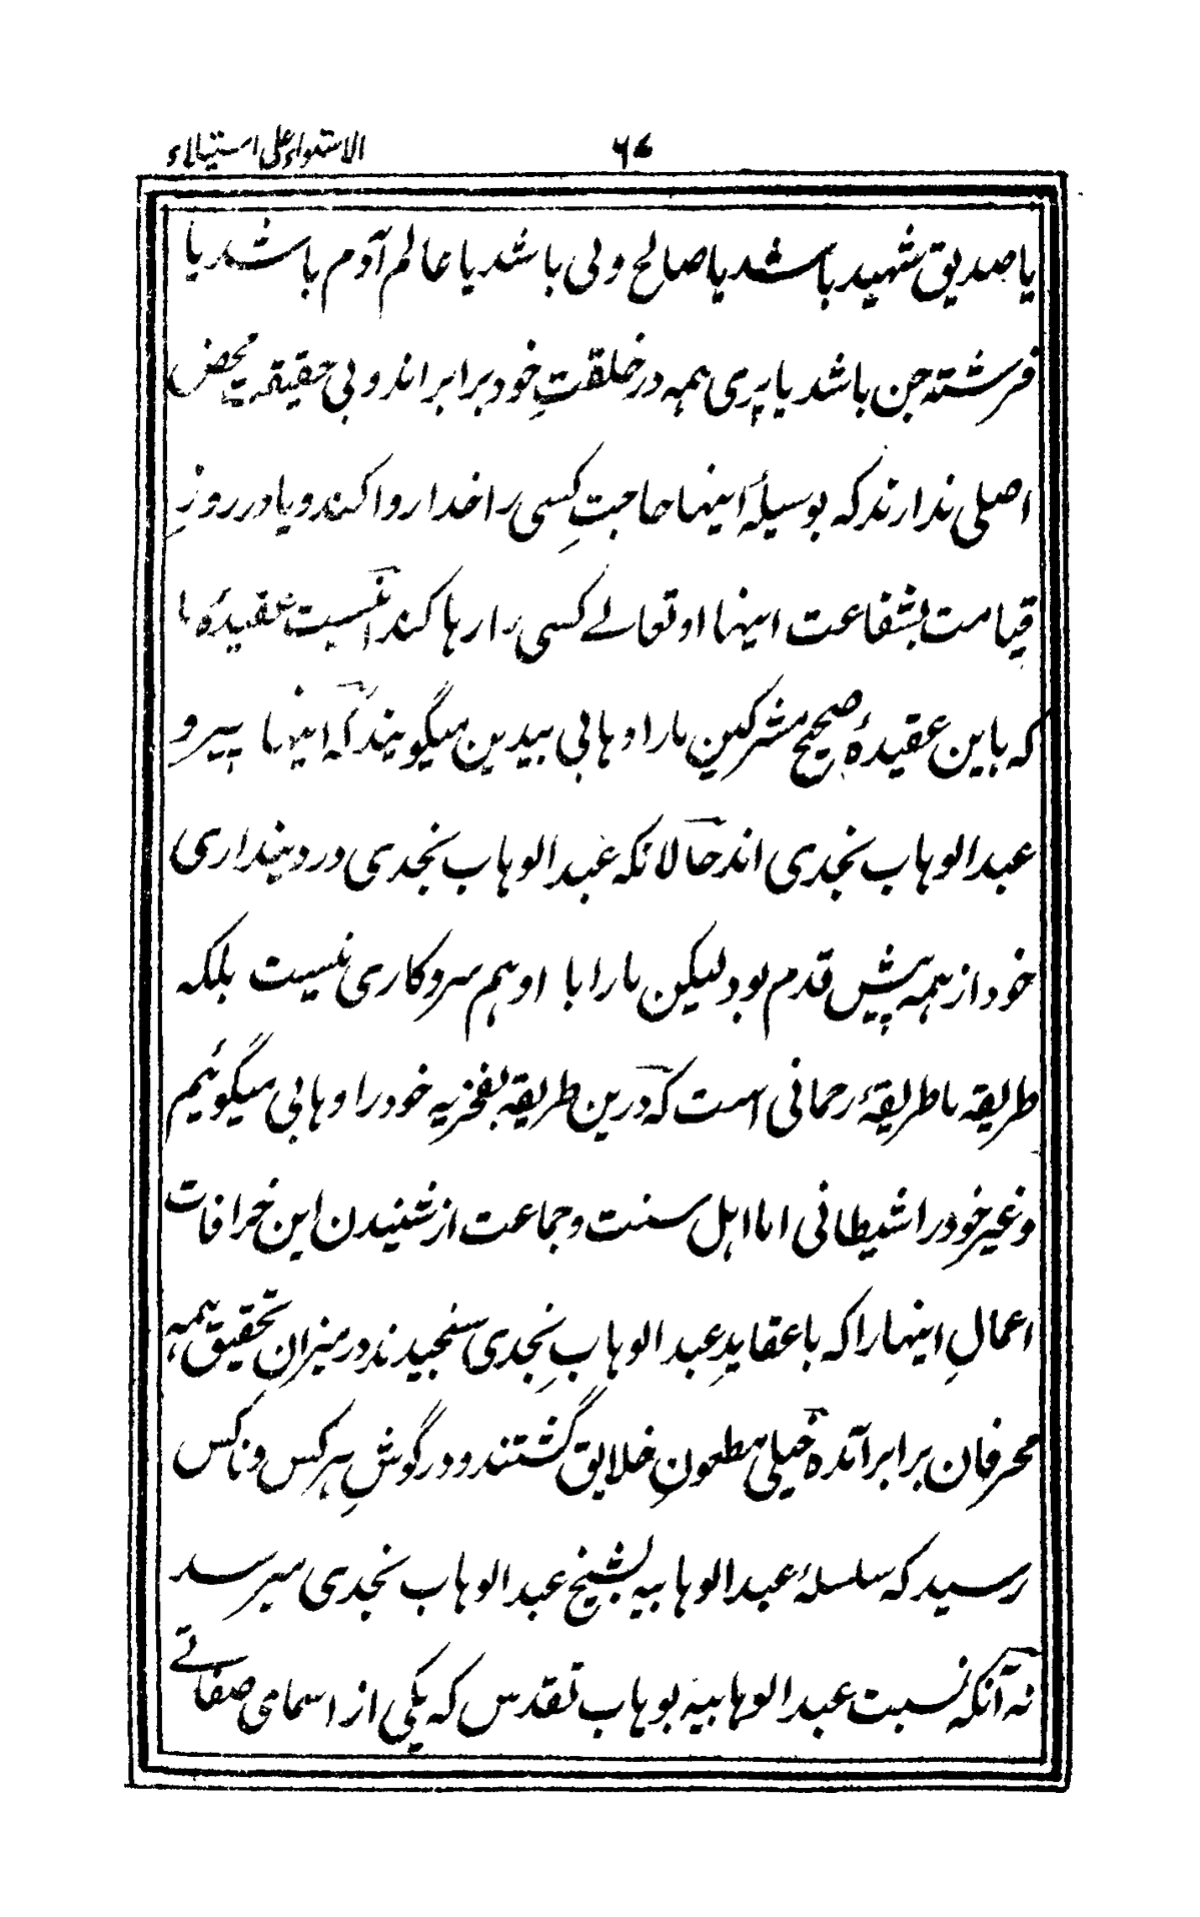 ۶۷ الاستواء علی استیلاء
یا صدیق شهید باشد یا صالح ولی باشد یا عالم آدم باشد یا
فرشته جن باشد یا پری همه در خلقتِ خود برابر اند و بی حقیقة محض
اصلی ندارند که بوسیلۀ اینها حاجتِ کسی را خدا روا کند و یا در روزِ
قیامت بشفاعت اینها او تعالے کسی را رها کند اینست عقیدۀ ما
که باین عقیدۀ صحیح مشرکین ما را وهابی بیدین میگویند که اینها پیرو
عبدالوهاب نجدی اند حالانکه عبدالوهاب نجدی در دینداری
خود از همه پیش قدم بود لیکن ما را با او هم سروکاری نیست بلکه
طریقه ما طریقۀ رحمانی است که درین طریقه بفخریه خود را وهابی میگوئیم
و غیر خود را شیطانی اما اهل سنت و جماعت از شنیدن این خرافات
اعمالِ اینها را که با عقایدِ عبدالوهابِ نجدی سنجیدند در میزانِ تحقیق همه
محرفان برابر آمده خیلی مطعونِ خلایق گشتند و در گوشِ هر کس و ناکس
رسید که سلسلۀ عبدالوهابیه بشیخ عبدالوهاب نجدی میرسد
نه آنکه نسبت عبدالوهابیه بوهاب تقدس که یکی از اسمای صفاتے